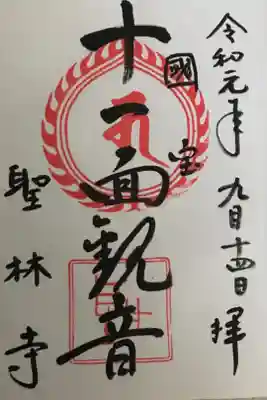 令和元年九月十四日拝
國宝
十一面観音
聖林寺